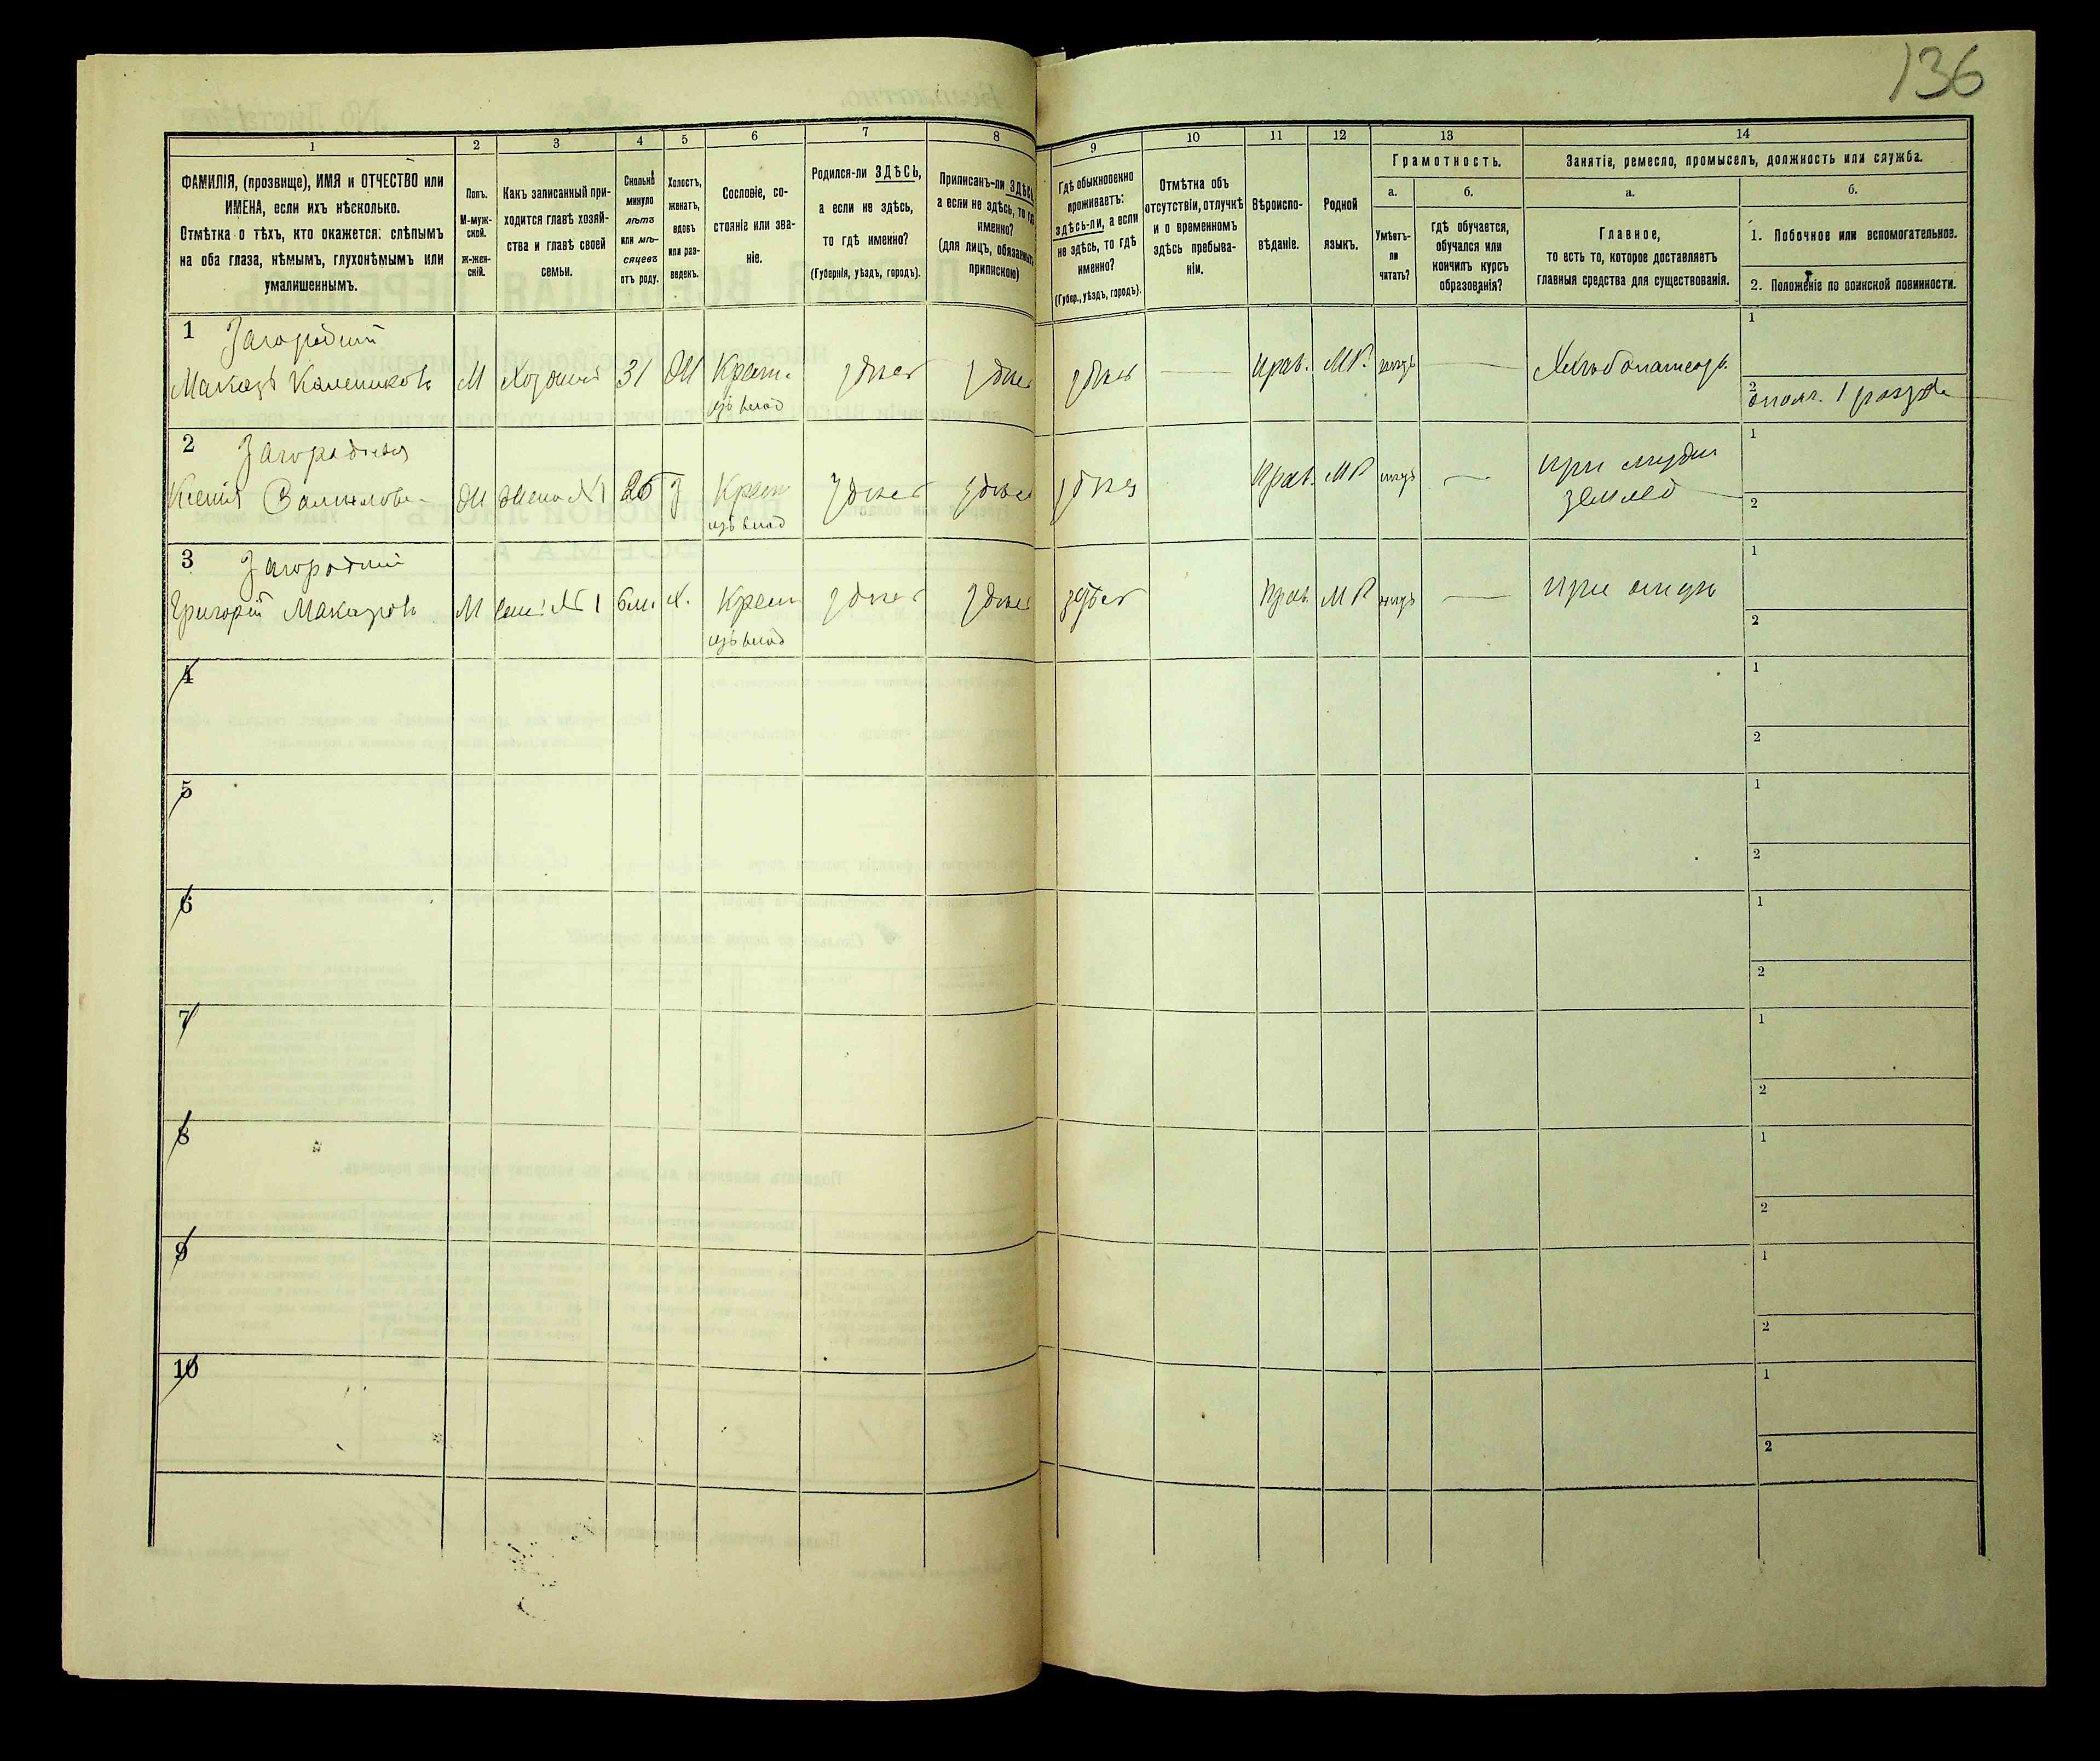 136
1
2
3
4
5
6
7
8
9
10
11
12
13
14
ФАМИЛІЯ, (прозвище), ИМЯ и ОТЧЕСТВО или
ИМЕНА, если ихъ нѣсколько.
Отмѣтка о тѣхъ, кто окажется: слѣпымъ
на оба глаза, нѣмымъ, глухонѣмымъ или
умалишеннымъ.
Полъ.
М-муж-
ской.
ж-жен-
скій.
Какъ записанный при-
ходится главѣ хозяй-
ства и главѣ своей
семьи.
Сколько
минуло
лѣтъ
или мѣ-
сяцевъ
отъ роду.
Холостъ,
женатъ,
вдовъ
или раз-
веденъ.
Сословіе, со-
стояніе или зва-
ніе.
Родился-ли ЗДѢСЬ,
а если не здѣсь,
то гдѣ именно?
(Губернія, уѣздъ, городъ).
Приписанъ-ли ЗДѢСЬ
а если не здѣсь, то гдѣ
именно?
(для лицъ, обязанныхъ
припискою)
Гдѣ обыкновенно
проживаетъ:
здѣсь-ли, а если
не здѣсь, то гдѣ
именно?
(Губер., уѣздъ, городъ).
Отмѣтка объ
отсутствіи, отлучкѣ
и о временномъ
здѣсь пребыва-
ніи.
Вѣроиспо-
вѣданіе.
Родной
языкъ.
Грамотность.
а.
Умѣетъ-
ли
читать?
б.
гдѣ обучается,
обучался или
кончилъ курсъ
образованія?
Занятіе, ремесло, промыселъ, должность или служба.
а.
Главное,
то есть то, которое доставляетъ
главныя средства для существованія.
б.
1. Побочное или вспомогательное.
2. Положеніе по воинской повинности.
1 Загородній
М Хозяинъ 31 Ж Крест. здѣсь здѣсь здѣсь — Прав. МР. — Хлѣбопашецъ
изъ влад
1
2
ополч. 1 разряда
2
Ксенія
Ж жена №1 26 З Крест здѣсь здѣсь здѣсь Прав. МР — при мужѣ
изъ влад
1
2
3 Загородній
Григорій
М сынъ №1 6м. Х. Крест здѣсь здѣсь здѣсь Прав. МР — при отцѣ
изъ влад
1
2
4
1
2
5
1
2
6
1
2
7
1
2
8
1
2
9
1
2
10
1
2